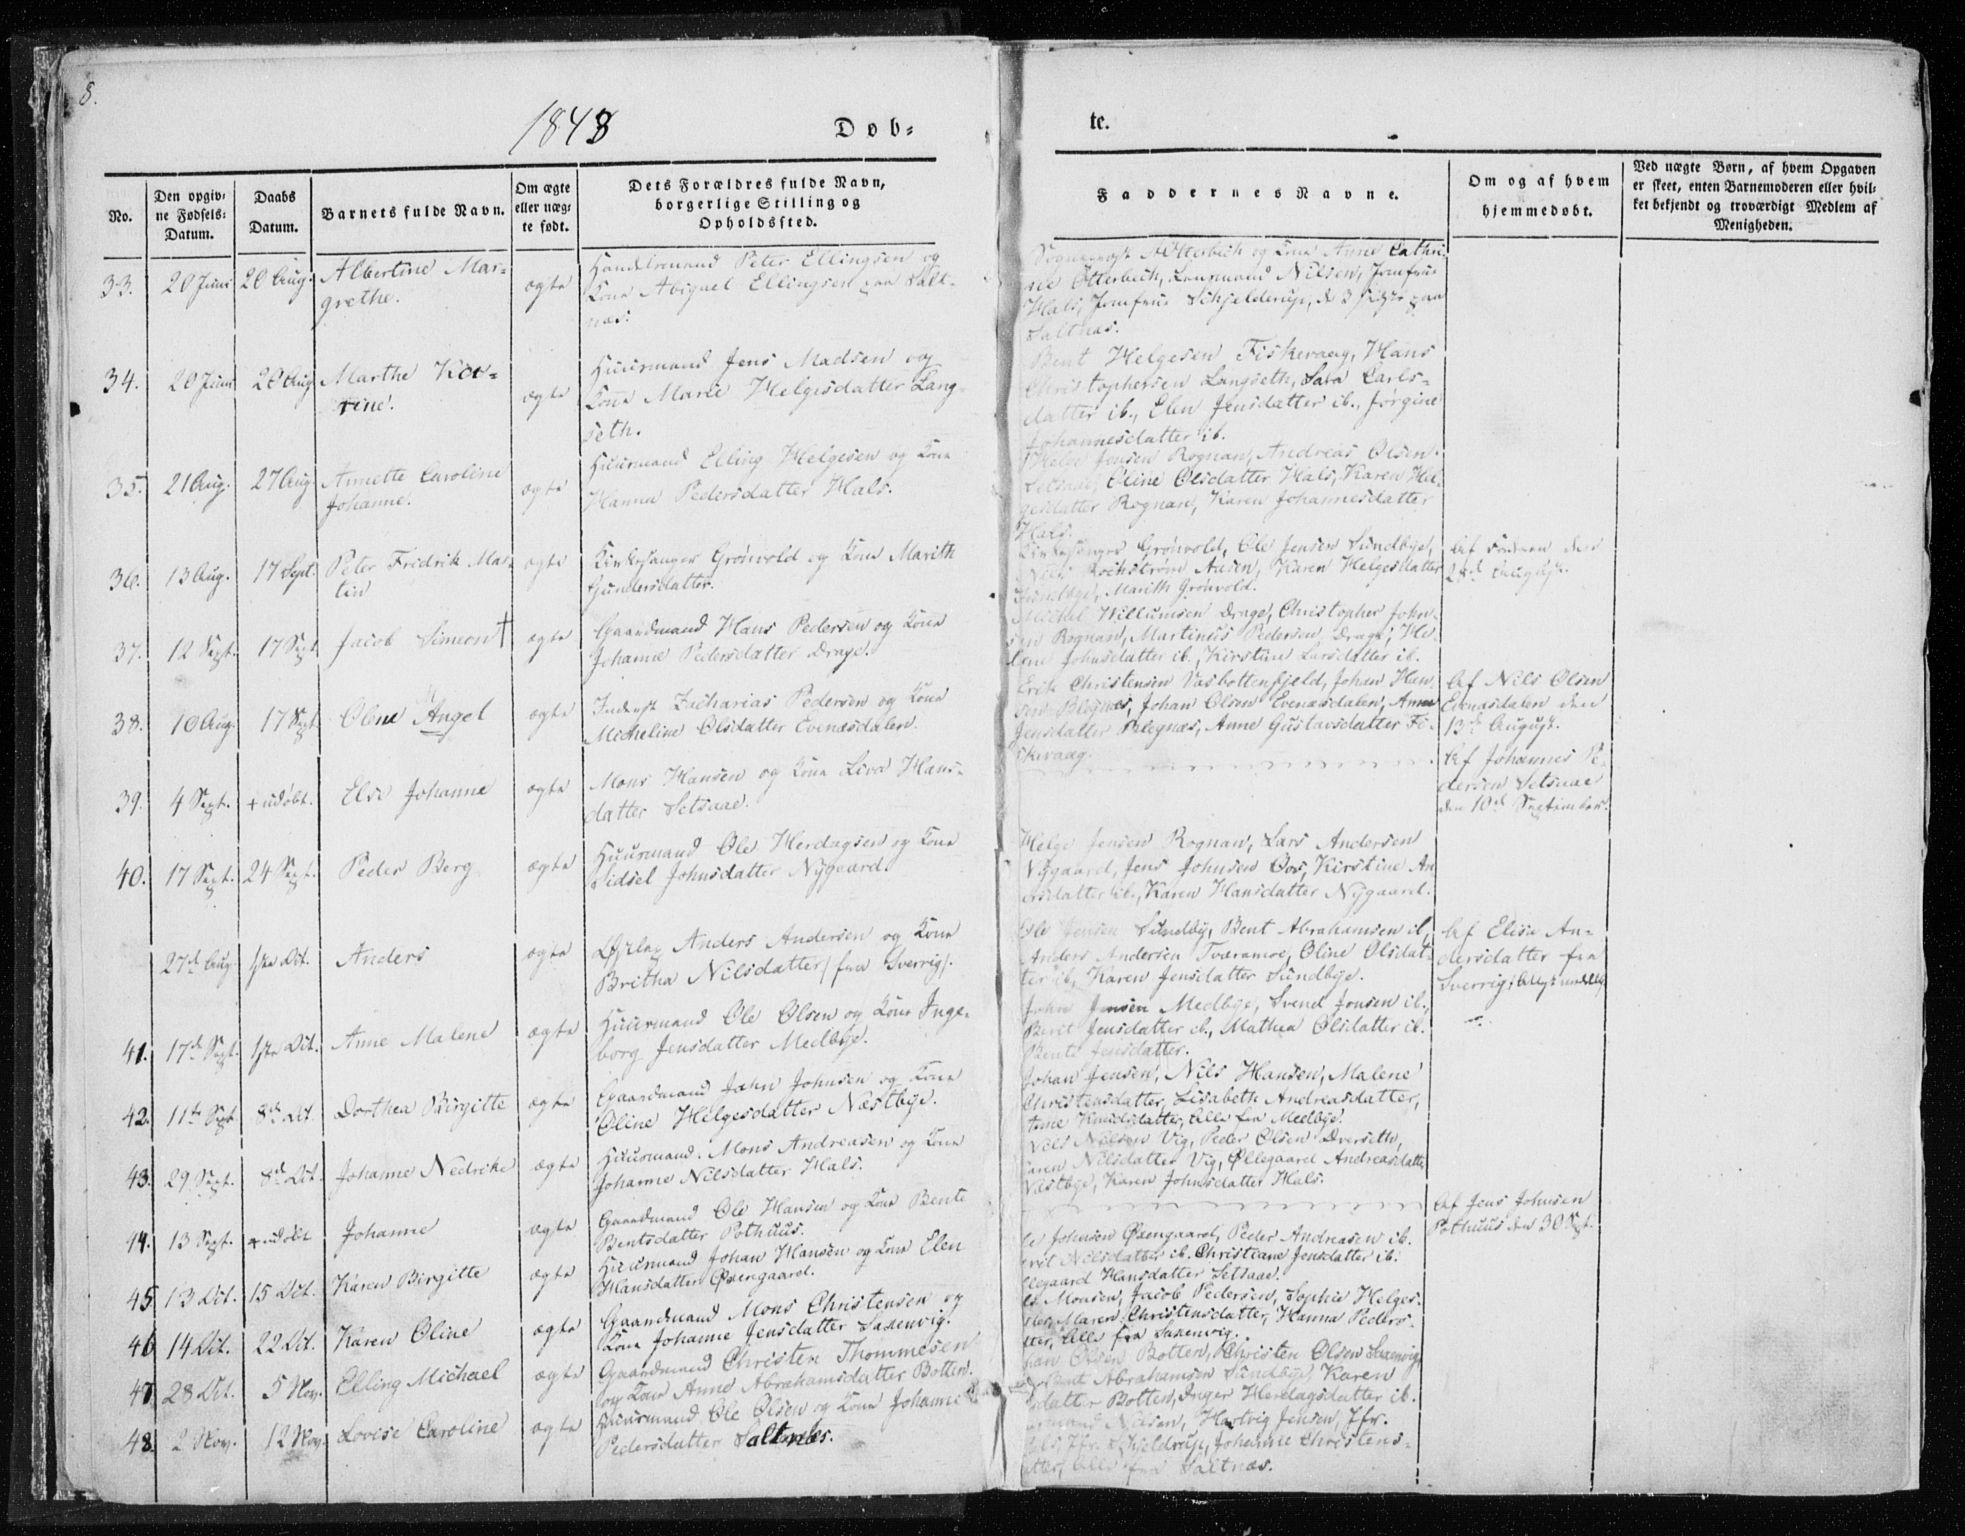 8.
1848
Døb-
te.
No.
Den opgiv-
ne Fødsels-
Datum.
Daabs
Datum.
Barnets fulde Navn.
Om ægte
eller uæg-
te født.
Dets Forældres fulde Navn,
borgerlige Stilling og
Opholdssted.
Faddernes Navne.
Om og af hvem
hjemmedøbt.
Ved uægte Børn, af hvem Opgaven
er skeet, enten Barnemoderen eller hvil-
ket bekjendt og troværdigt Medlem af
Menigheden.
33. 20 Juni 20 Aug. Albertine Mar-
grethe.
ægte
Handelsmand Peter Ellingsen og
Kone Abigael Ellingsen paa Salt-
næs.
Otterbech og Kone Anne Cathri-
ne Otterbech, Lensmand Nilsen, Jomfrue
Hals, Jomfrue Schjelderup, paa
Saltnæs.
34. 20 Juni 20 Aug. Marthe Kor-
rine.
ægte
Huusmand Jens Madsen og
Kone Marie Helgesdatter Lang-
seth.
Bent Helgesen Fiskevaag, Hans
Christophersen Langseth, Sara Carls-
datter ib., Elen Jensdatter ib., Jørgine
Johannesdatter ib.
35. 21 Aug. 27 Aug. Annette Caroline
Johanne.
ægte
Huusmand Elling Helgesen og Kone
Hanna Pedersdatter Hals.
Helge Jensen Rognan, Andreas Olsen
Setsaae, Oline Olsdatter Hals, Karen Hel-
gesdatter Rognan, Karen Johannesdatter
Hals.
36. 13 Aug. 17 Sept. Peter Fridrik Mar-
tin
ægte
Kirkesanger Grønvold og Kone Marith
Gundersdatter.
Kirkesanger Grønvold, Ole Jensen Sundbye,
Nils Aasen, Karen Helgesdatter
Sundbye, Marith Grønvold.
Af den
28de August.
37. 12 Sept. 17 Sept. Jacob Simeon †
ægte
Gaardmand Hans Pedersen og Kone
Johanne Pedersdatter Drage.
Michel Willumsen Drage, Christopher John-
sen Rognan, Martinus Pedersen Drage, He-
lene Johnsdatter ib., Kirstine Larsdatter ib.
38. 10 Aug. 17 Sept. Olene Angel
ægte
Inderst Zacharias Pedersen og Kone
Micheline Olsdatter Evenæsdalen.
Erik Christensen Vasbottenfjeld, Johan Han-
sen Blegnæs, Johan Olsen Evenæsdalen, Anne
Jensdatter Blegnæs, Anne Gustavsdatter Fi-
skevaag.
Af Nils Olsen
Evenæsdalen den
13de August.
39. 4 Sept. + udøbt. Else Johanna
ægte
Mons Hansen og Kone Liva Hans-
datter Setsaae.
Af Johannes Pe-
dersen Setsaae
den 10de September.
40. 17 Sept. 24 Sept. Peder Berg
ægte
Huusmand Ole Herdagsen og Kone
Sidsel Johnsdatter Nygaard.
Helge Jensen Rognan, Lars Andersen
Nygaard, Jens Johnsen Bos, Kirstine An-
dersdatter ib., Karen Hansdatter Nygaard.
27de Aug. 1ste Oct. Anders
ægte
Anders Andersen og Kone
Britha Nilsdatter (fra Sverrig).
Ole Jensen Sundby, Bent Abrahamsen ib.,
Anders Andersen Tværamoe, Oline Olsdat-
ter ib., Karen Jensdatter Sundbye.
Af Elisa An-
dersdatter fra
Sverrig
41. 17de Sept. 1ste Oct. Anne Malene
ægte
Huusmand Ole Olsen og Kone Inge-
borg Jensdatter Medbye.
John Jensen Medbye, Svend Jonsen ib.,
Berit Jensdatter ib., Mathea Olsdatter ib.
Bente Jensdatter.
42. 11te Sept. 8de Oct. Dorthea Birgitte
ægte
Gaardmand John Johnsen og Kone
Oline Helgesdatter Næstbye.
Johan Jensen, Nils Hansen, Malene
Christensdatter, Lisabeth Andreasdatter,
Anne Knudsdatter, alle fra Medbye.
43. 29 Sept. 8de Oct. Johanne Nedrike
ægte
Huusmand Mons Andreasen og Kone
Johanne Nilsdatter Hals.
Nils Nilsen Vig, Peder Olsen Dverseth,
Karen Nilsdatter Vig, Øllegaard Andreasdatter
Væstbye, Karen Johnsdatter Hals.
44. 13 Sept. + udøbt Johanne
ægte
Gaardmand Ole Hansen og Kone Bente
Bentsdatter Pothuus.
Af Jens Johnsen
Pothuus den 30 Sept.
45. 13 Oct. 15 Oct. Karen Birgitte
ægte
Huusmand Johan Hansen og Kone Elen
Hansdatter Øxengaard.
Johnsen Øxengaard, Peder Andreasen ib.
Nilsdatter ib. Christiane Jensdatter ib.
Hansdatter Setsaae.
46 14 Oct. 22 Oct. Karen Oline
ægte
Gaardmand Mons Christensen og
Kone Johanne Jensdatter Saxenvig.
Monsen, Jacob Pedersen, Sophie Helges-
Maren Christensdatter, Hanna Peders-
alle fra Saxenvig.
47 28 Oct. 5 Nov. Elling Michael
ægte
Gaardmand Christen Thommesen
og Kone Anne Abrahamsdatter Botten.
Olsen Botten, Christen Olsen Saxenvig
Bent Abrahamsen Sundbye, Karen
datter Botten, Inger Herdagsdatter ib.
48. 2 Nov. 12 Nov. Lovise Caroline
ægte
Huusmand Ole Olsen og Kone Johanne
Pedersdatter Saltnæs.
Nilsen, Hartvig Jensen, Jfr.
Jfr. Schjeldrup, Johanne Christens-
alle fra Saltnæs.